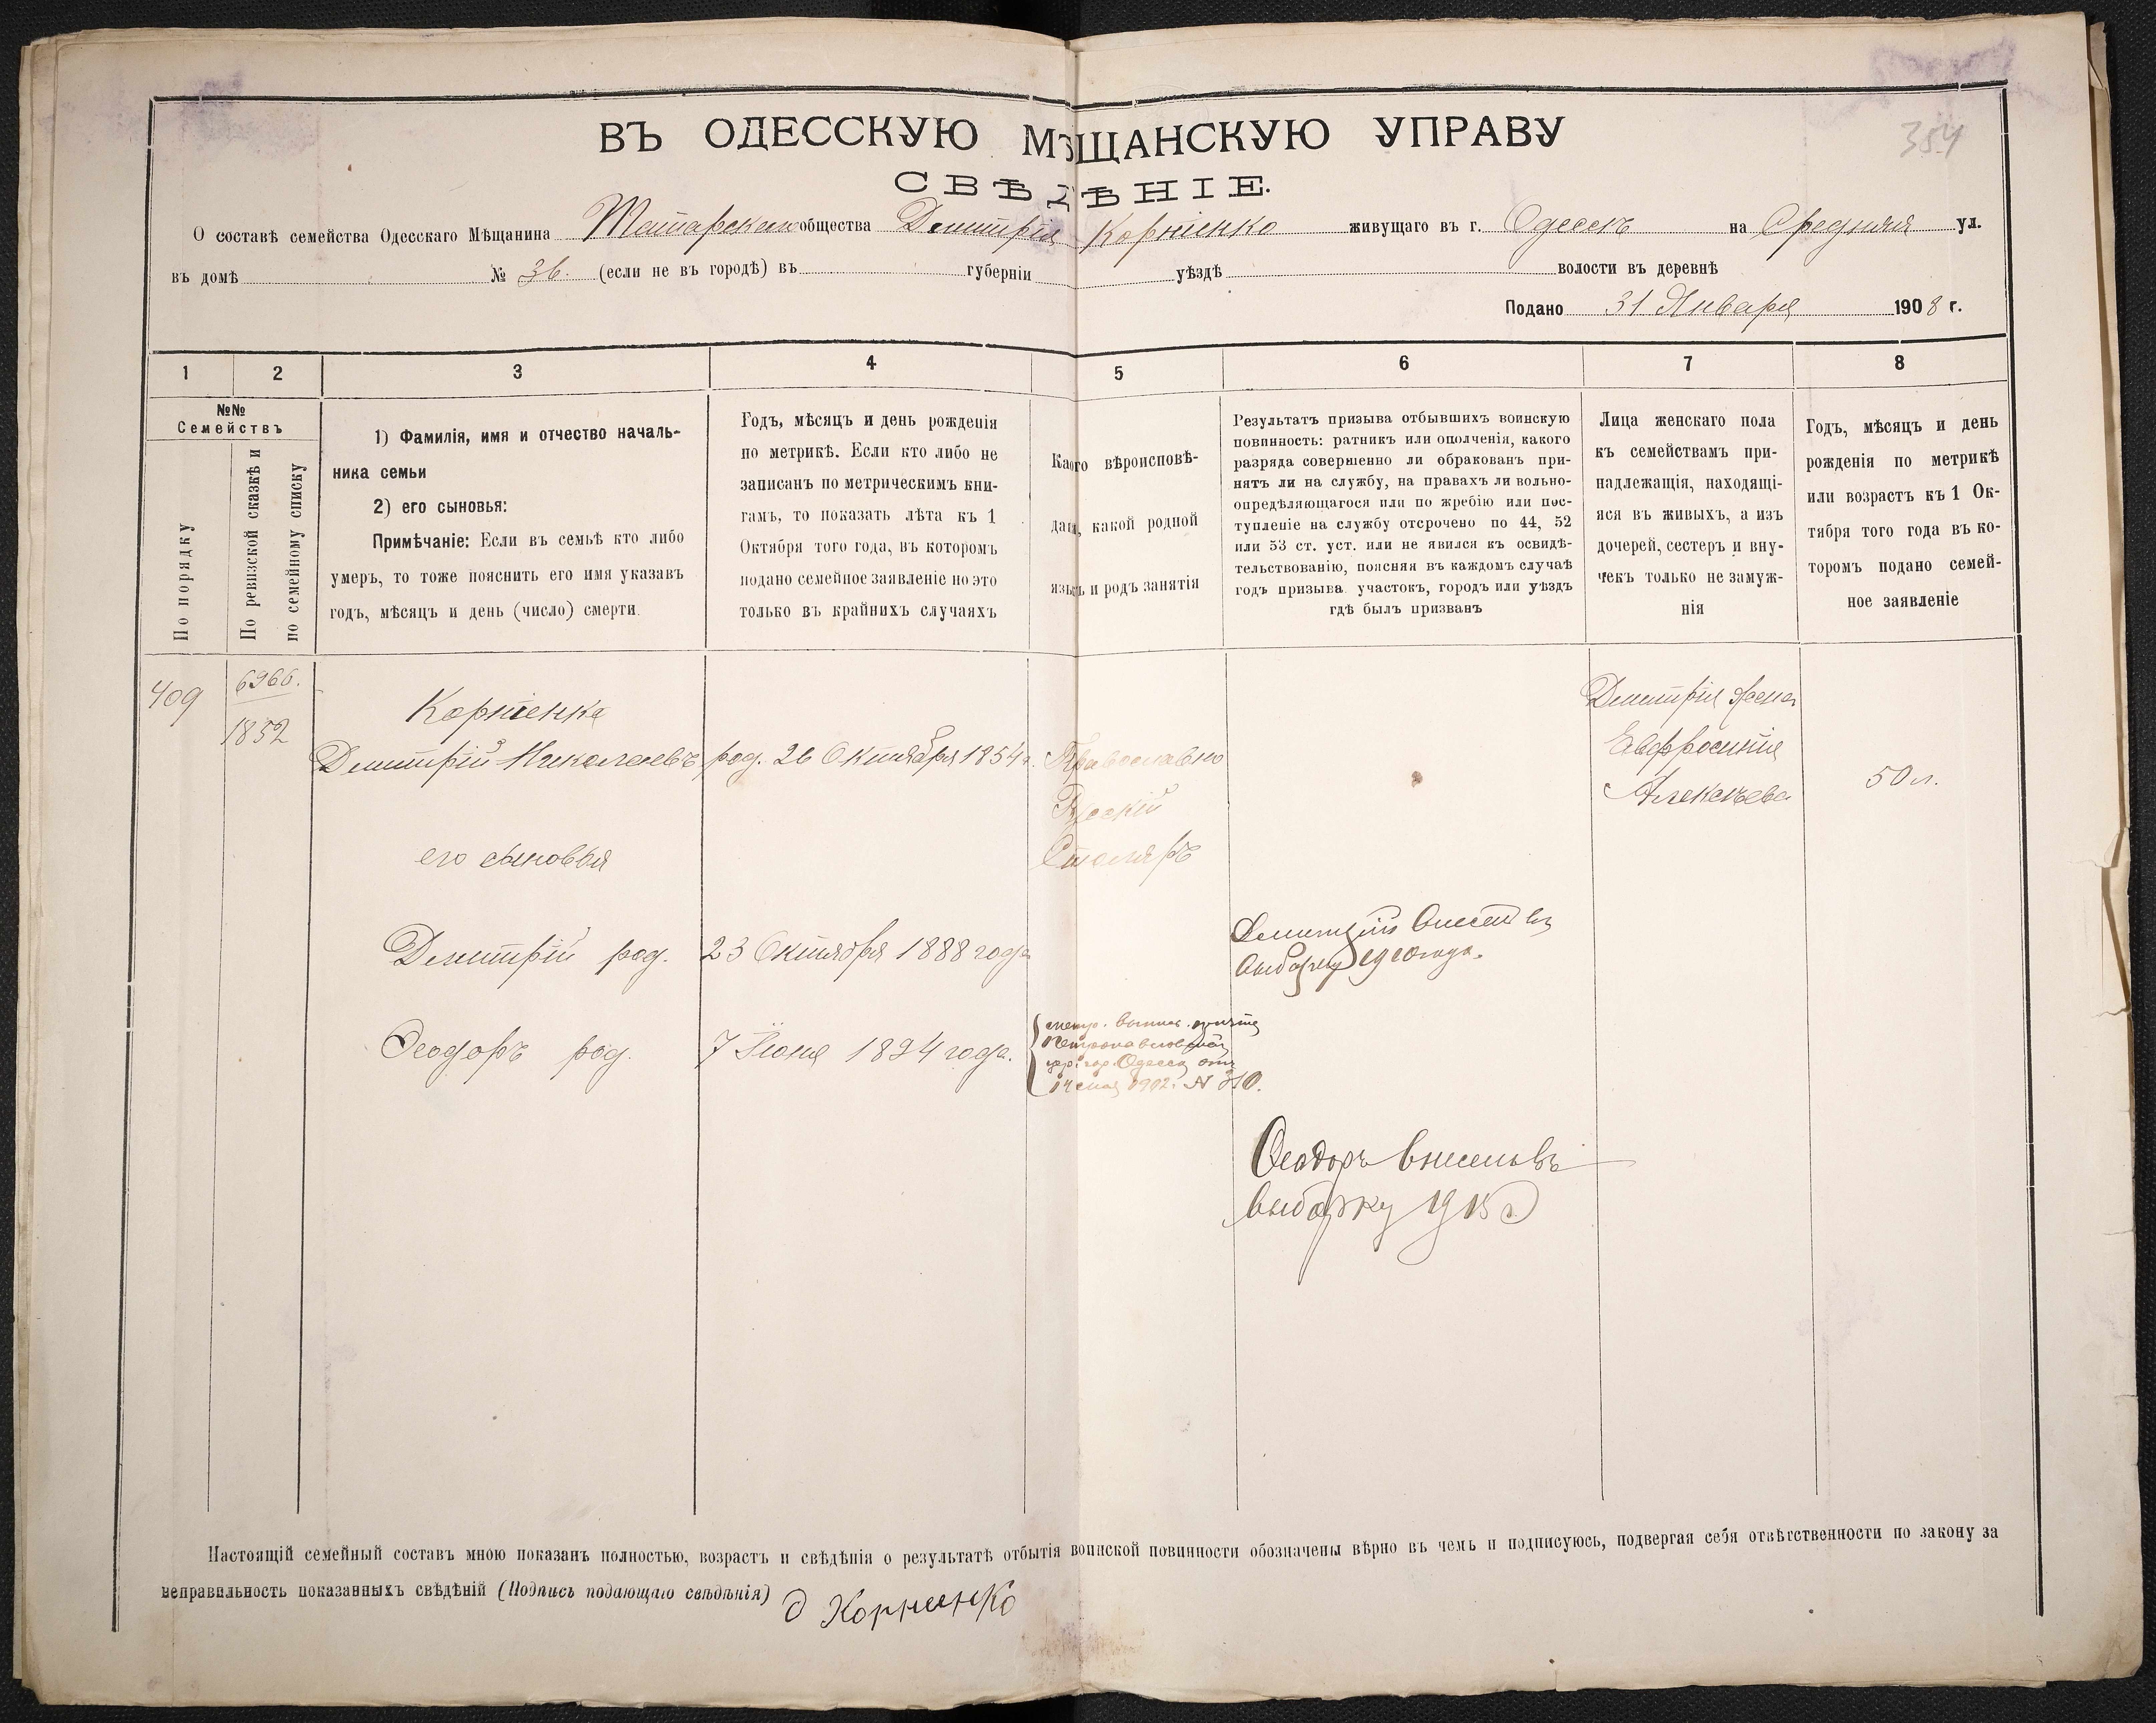 ВЪ ОДЕССКУЮ МѢЩАНСКУЮ УПРАВУ
354
СВѢДѢНІЕ.
О составѣ семейства Одесскаго Мѣщанина Татарскаго общества Демитрія Корніенко живущаго въ г. Одессѣ на Средняя ул.
въ домѣ № 36. (если не въ городѣ) въ губерніи уѣздѣ волости въ деревнѣ
Подано 31 Января 1908 г.
1 2 3 4 5 6 7 8
№№
Семействъ
По порядку
По ревизской сказкѣ и
по семейному списку
1) Фамилія, имя и отчество началь-
ника семьи
2) его сыновья:
Примѣчаніе: Если въ семьѣ кто либо
умеръ, то тоже пояснить его имя указавъ
годъ, мѣсяцъ и день (число) смерти.
Годъ, мѣсяцъ и день рожденія
по метрикѣ. Если кто либо не
записанъ по метрическимъ кни-
гамъ, то показать лѣта къ 1
Октября того года, въ которомъ
подано семейное заявленіе но это
только въ крайнихъ случаяхъ
Какого вѣроисповѣ-
данія, какой родной
языкъ и родъ занятія
Результатъ призыва отбывшихъ воинскую
повинность: ратникъ или ополченія, какого
разряда совершенно ли обракованъ при-
нятъ ли на службу, на правахъ ли вольно-
опредѣляющагося или по жребію или пос-
тупленіе на службу отсрочено по 44, 52
или 53 ст. уст. или не явился къ освидѣ-
тельствованію, поясняя въ каждомъ случаѣ
годъ призыва участокъ, городъ или уѣздъ
гдѣ былъ призванъ
Лица женскаго пола
къ семействамъ при-
надлежащія, находящі-
яся въ живыхъ, а изъ
дочерей, сестеръ и вну-
чекъ только не замуж-
нія
Годъ, мѣсяцъ и день
рожденія по метрикѣ
или возрастъ къ 1 Ок-
тября того года въ ко-
торомъ подано семей-
ное заявленіе
409
6966.
1852
Корніенко
Демитрій Николаевъ род. 26 Октября 1854 г.
Православно
Русскій
Столяръ
Демитрія жена
Евфросинія
Алексѣева
50 л.
его сыновья
Демитрій род. 23 Октября 1888 года
Демитрій внесенъ въ
выборку 1910 года.
Ѳеодоръ род. 7 Іюня 1894 года.
метр. выпись причта
Петропавловской
цер. гор. Одессы отъ
14 мая 1912 г. N 310.
Ѳеодоръ внесенъ въ
выборку 1915 г
Настоящій семейный составъ мною показанъ полностью, возрастъ и свѣдѣнія о результатѣ отбытія воинской повинности обозначены вѣрно въ чемъ и подписуюсь, подвергая себя отвѣтственности по закону за
неправильность показанныхъ свѣдѣній (Подпись подающаго свѣдѣнія) Д Корниенко